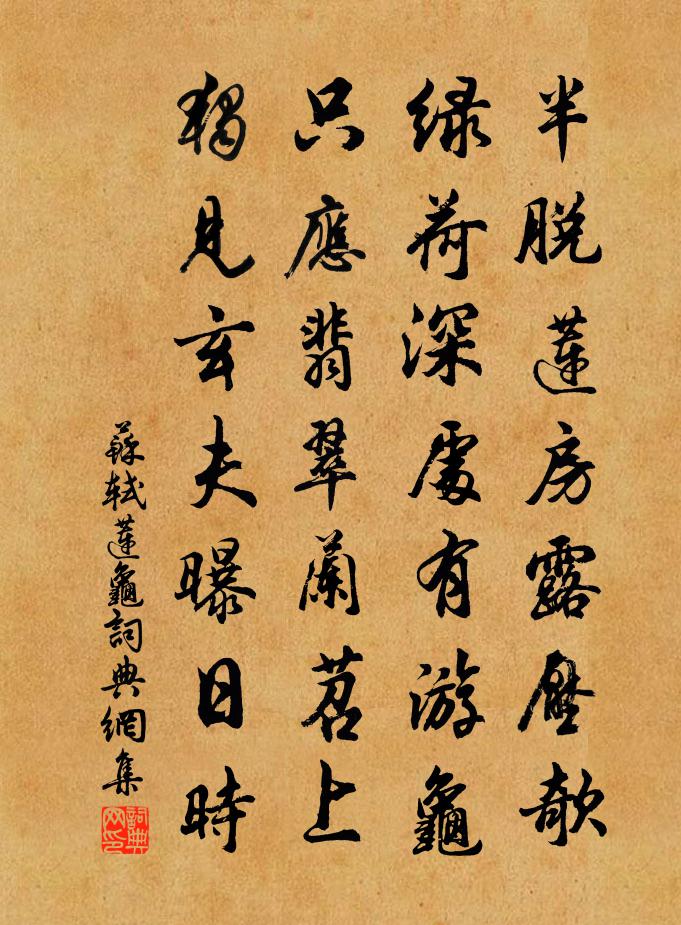 半脱蓮房露壓欹
緑荷深處有游龜
只應翡翠蘭苕上
獨見玄夫曝日時
蘇軾蓮龜詞典網集
詞典網印